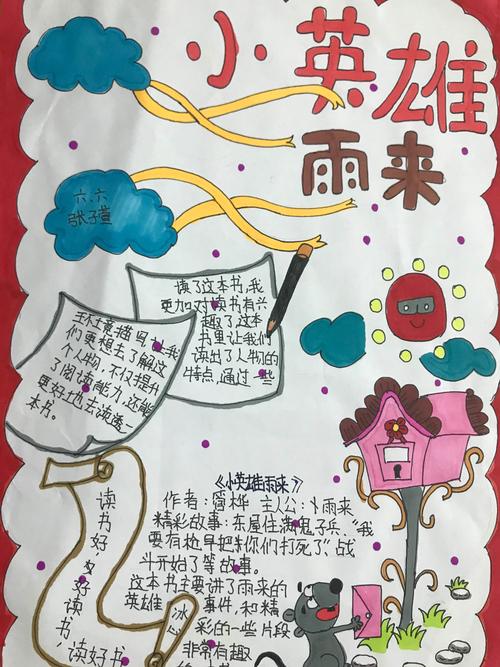 小英雄
雨来
六.六
张子萱
读了这本书,我
更加对读书有兴
趣了这本
书里让我们
读出了人物的
特点,通过一些
环境描写,让我
们更想去了解这
个人物,不仅提升
了阅读能力,还能
更好地去读透一
本书。
读书好 多好读书 读好书
《小英雄雨来》
作者:管桦 主人公:小雨来
精彩故事:东屋住满鬼子兵、“我
要有枪早把你们打死了”战
斗开始了等故事。
这本书主要讲了雨来的
英雄 事件,和精
彩的一些片段
非常有趣